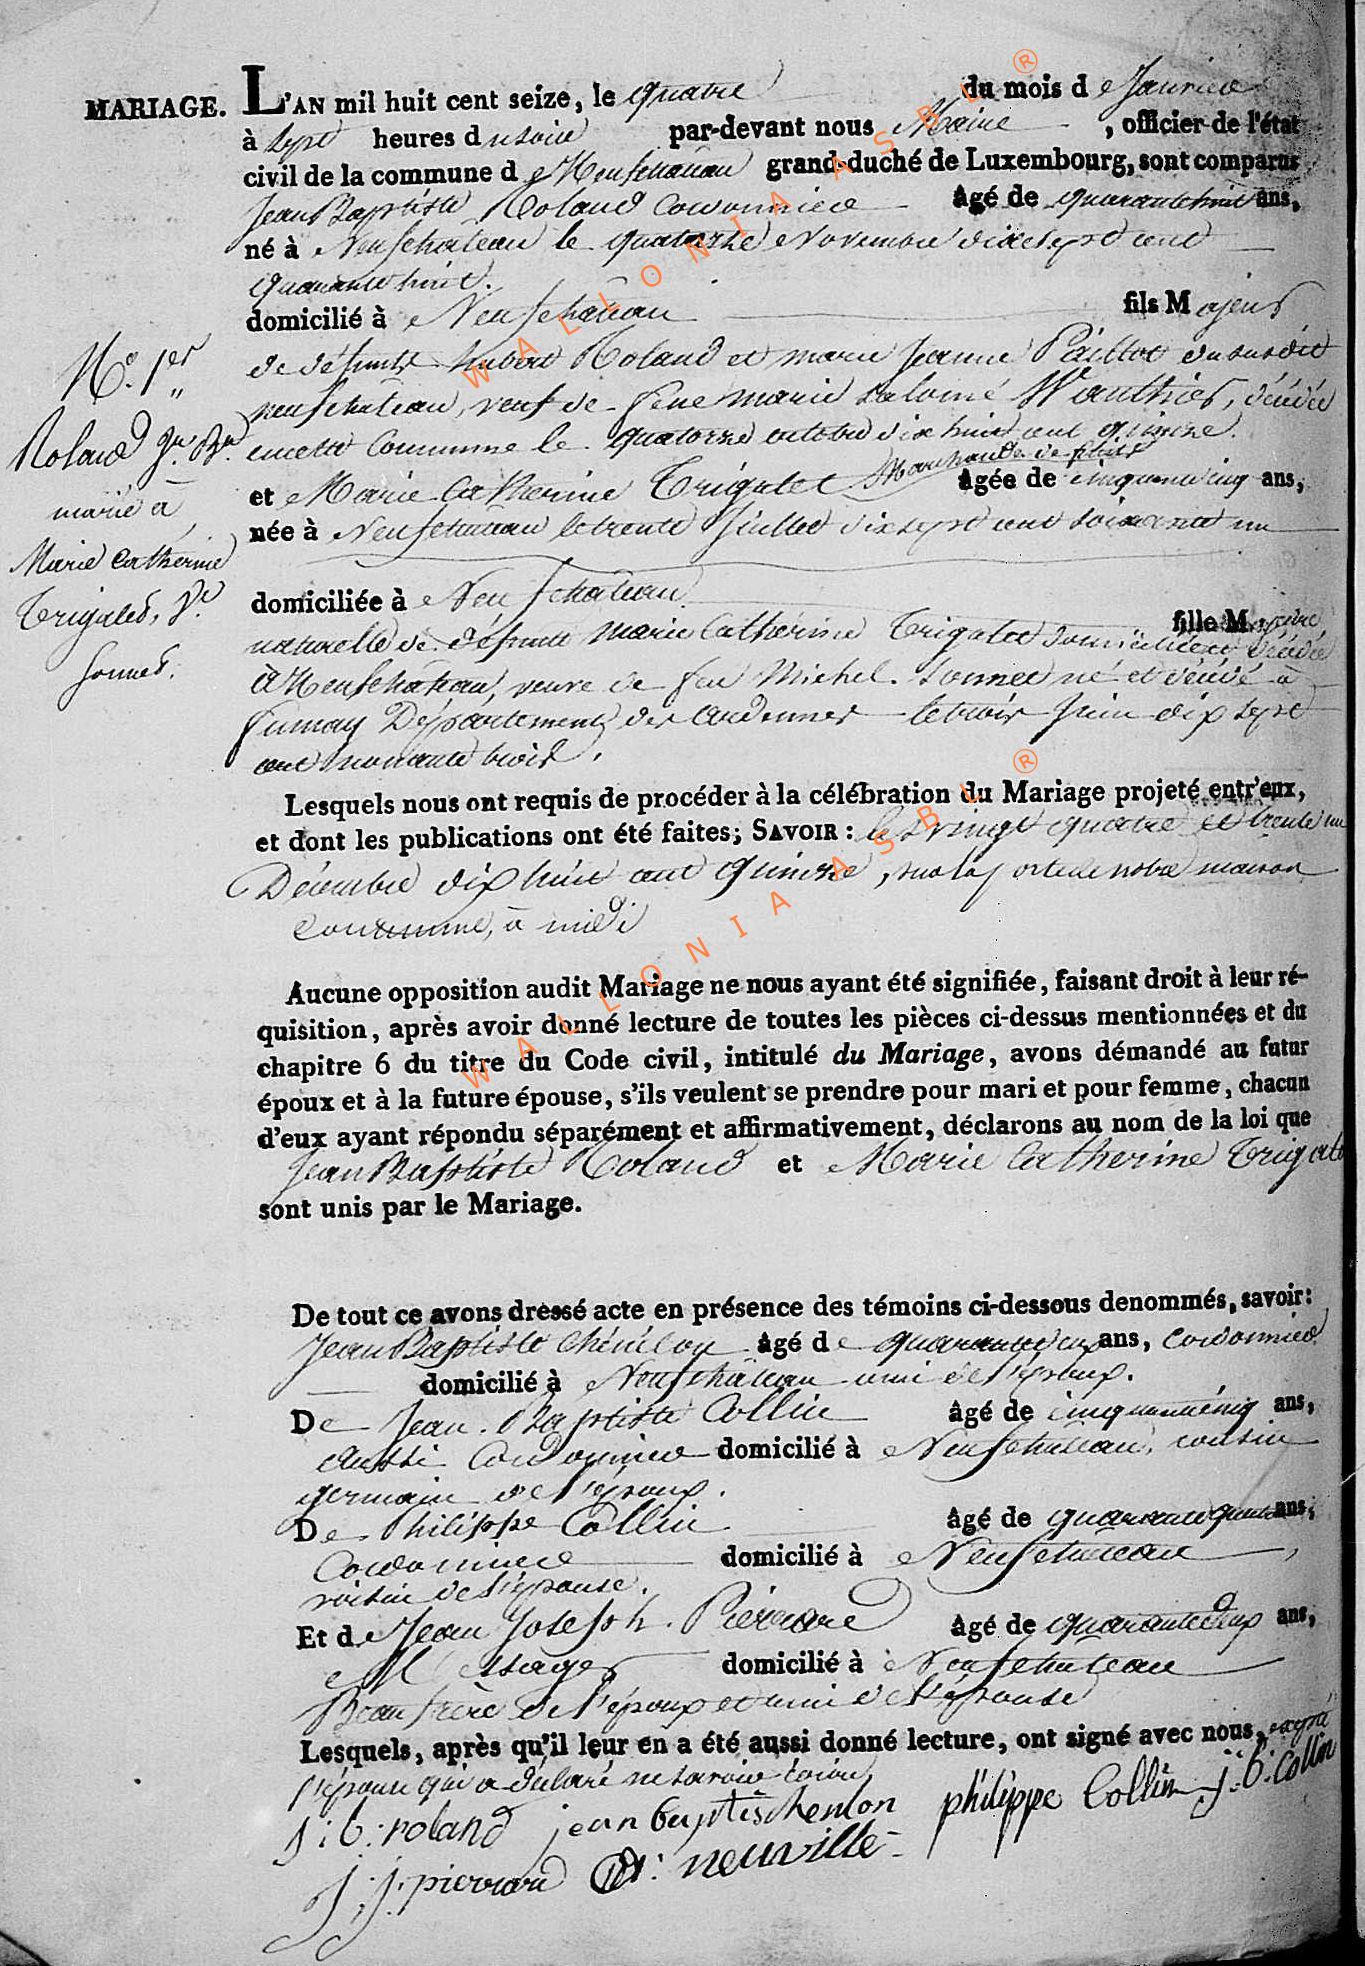 MARIAGE. L'AN mil huit cent seize, le quatre du mois de Janvier
à sept heures du soir par-devant nous Maire, officier de l'état
civil de la commune de Neufchateau grand-duché de Luxembourg, sont comparus
Jean Baptiste Roland Cordonnier âgé de quarante huit ans,
né à Neufchateau le quatorze Novembre dix sept cent
quarante huit.
domicilié à Neufchateau fils Majeur
de défunts hubert Roland et marie Jeanne Paillot du susdit
neufchateau, veuf de feue marie salomé Wauthier, décédée
en cette Commune le quatorze octobre dix huit cent quinze.
et Marie Catherine Trigalet Marchande de âgée de cinquante cinq ans,
née à Neufchateau le trente Juillet dix sept cent soixante un
domiciliée à Neufchateau fille Majeure
naturelle de défunte Marie Catherine Trigalet domiciliée et décédée
à Neufchateau, veuve de feu Michel Sonnet né et décédé à
fumay Département des ardennes le trois Juin dix sept
cent nonante trois.
N.° 1er
Roland Jn. Bn.
marié à
Marie Catherine
Trigalet, Ve
Sonnet.
Lesquels nous ont requis de procéder à la célébration du Mariage projeté entr'eux,
et dont les publications ont été faites; SAVOIR : les vingt quatre et trente un
Décembre dix huit cent quinze, sur la porte de notre maison
Commune, à midi
Aucune opposition audit Mariage ne nous ayant été signifiée, faisant droit à leur ré-
quisition, après avoir donné lecture de toutes les pièces ci-dessus mentionnées et du
chapitre 6 du titre du Code civil, intitulé du Mariage, avons démandé au futur
époux et à la future épouse, s'ils veulent se prendre pour mari et pour femme, chacun
d'eux ayant répondu séparément et affirmativement, déclarons au nom de la loi que
Jean Baptiste Roland et Marie Catherine Trigalet
sont unis par le Mariage.
De tout ce avons dressé acte en présence des témoins ci-dessous denommés, savoir:
Jean Baptiste Chénelon âgé de quarante ans, Cordonnier
domicilié à Neufchateau ami de l'époux.
De Jean Baptiste Collin âgé de cinquante cinq ans,
aussi Cordonnier domicilié à Neufchateau, cousin
germain de l'époux.
De Philippe Collin âgé de quarante quatre ans,
Cordonnier domicilié à Neufchateau,
voisin de l'épouse.
Et de Jean Joseph Pierrard âgé de quarante deux ans,
Messager domicilié à Neufchateau
Beau frère de l'époux et ami de l'épouse
Lesquels, après qu'il leur en a été aussi donné lecture, ont signé avec nous, excepté
l'épouse qui a déclaré ne savoir écrire
j: b: roland jean baptis chenlon philippe Collin j: b: Collin
j. j. pierrard neuville
WALLONIA ASBL ®
WALLONIA ASBL ®